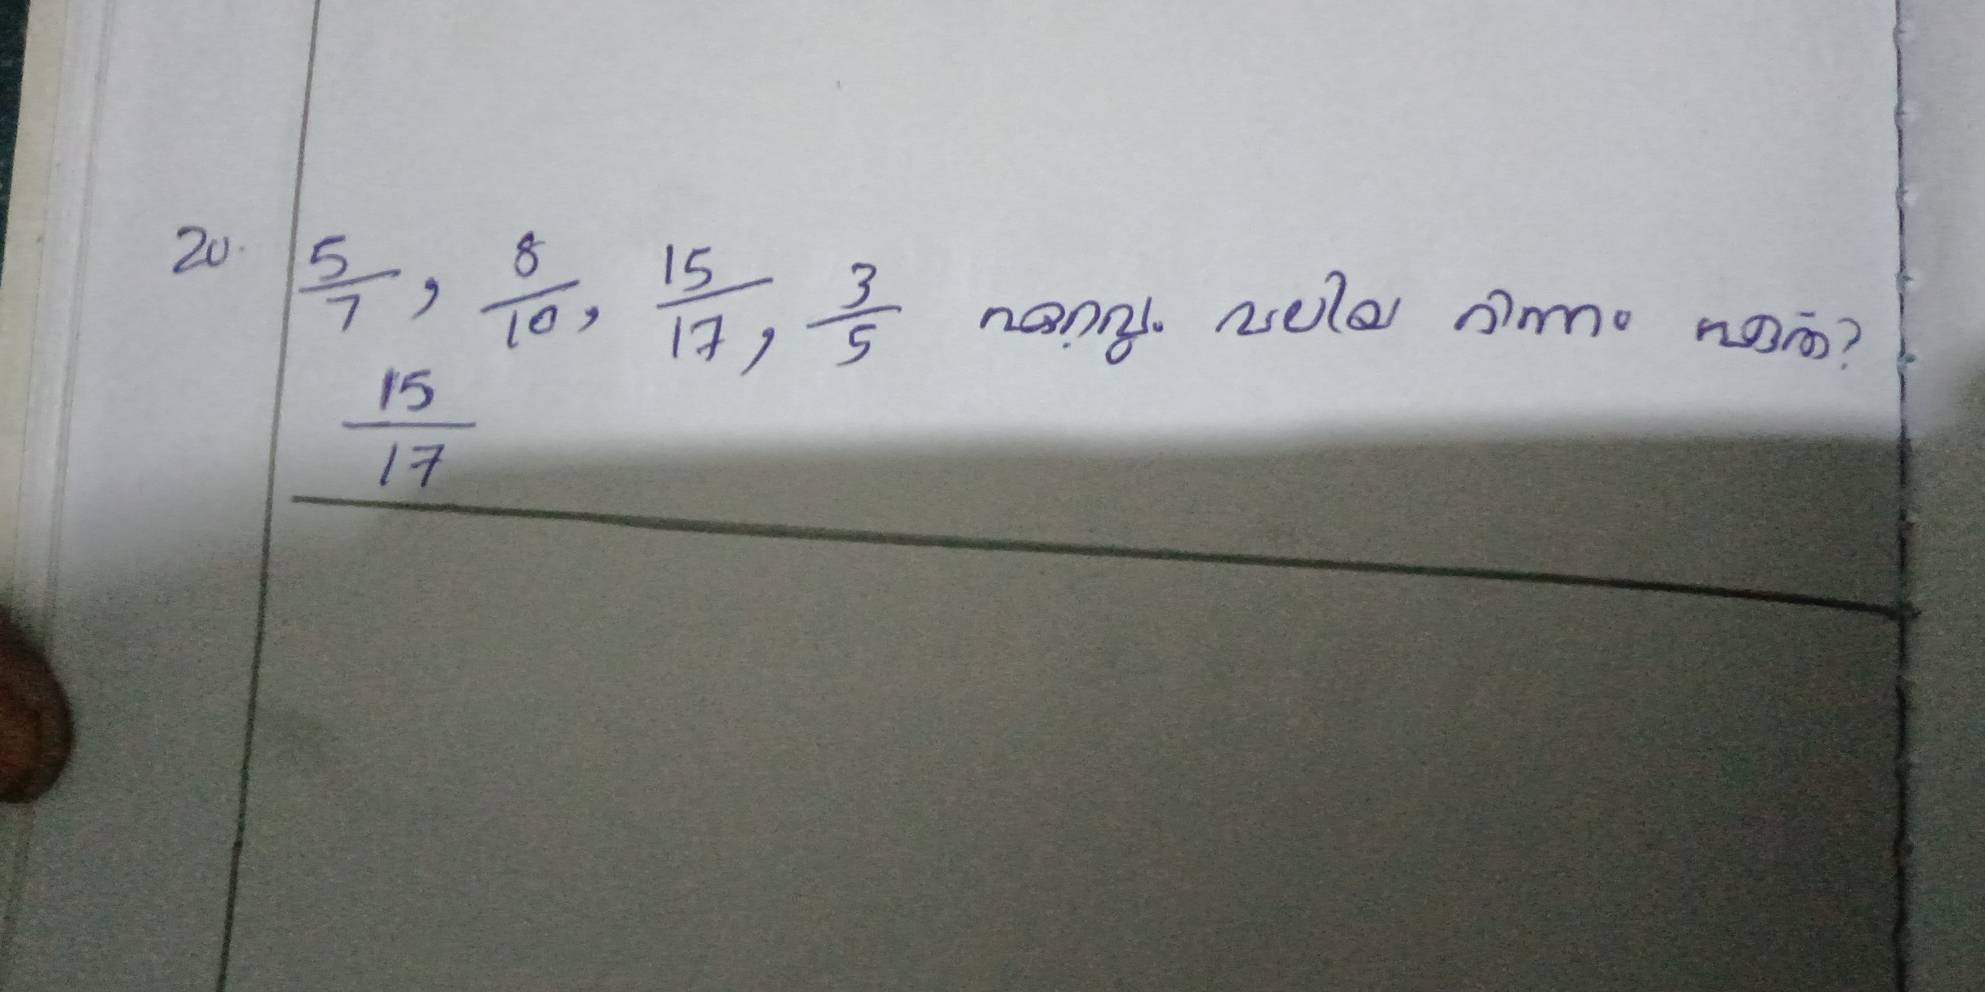 20. 5/7, 8/10, 15/17, 3/5 ഏറ്റവും വലിയ ഭിന്നം ഏത്?
15/17